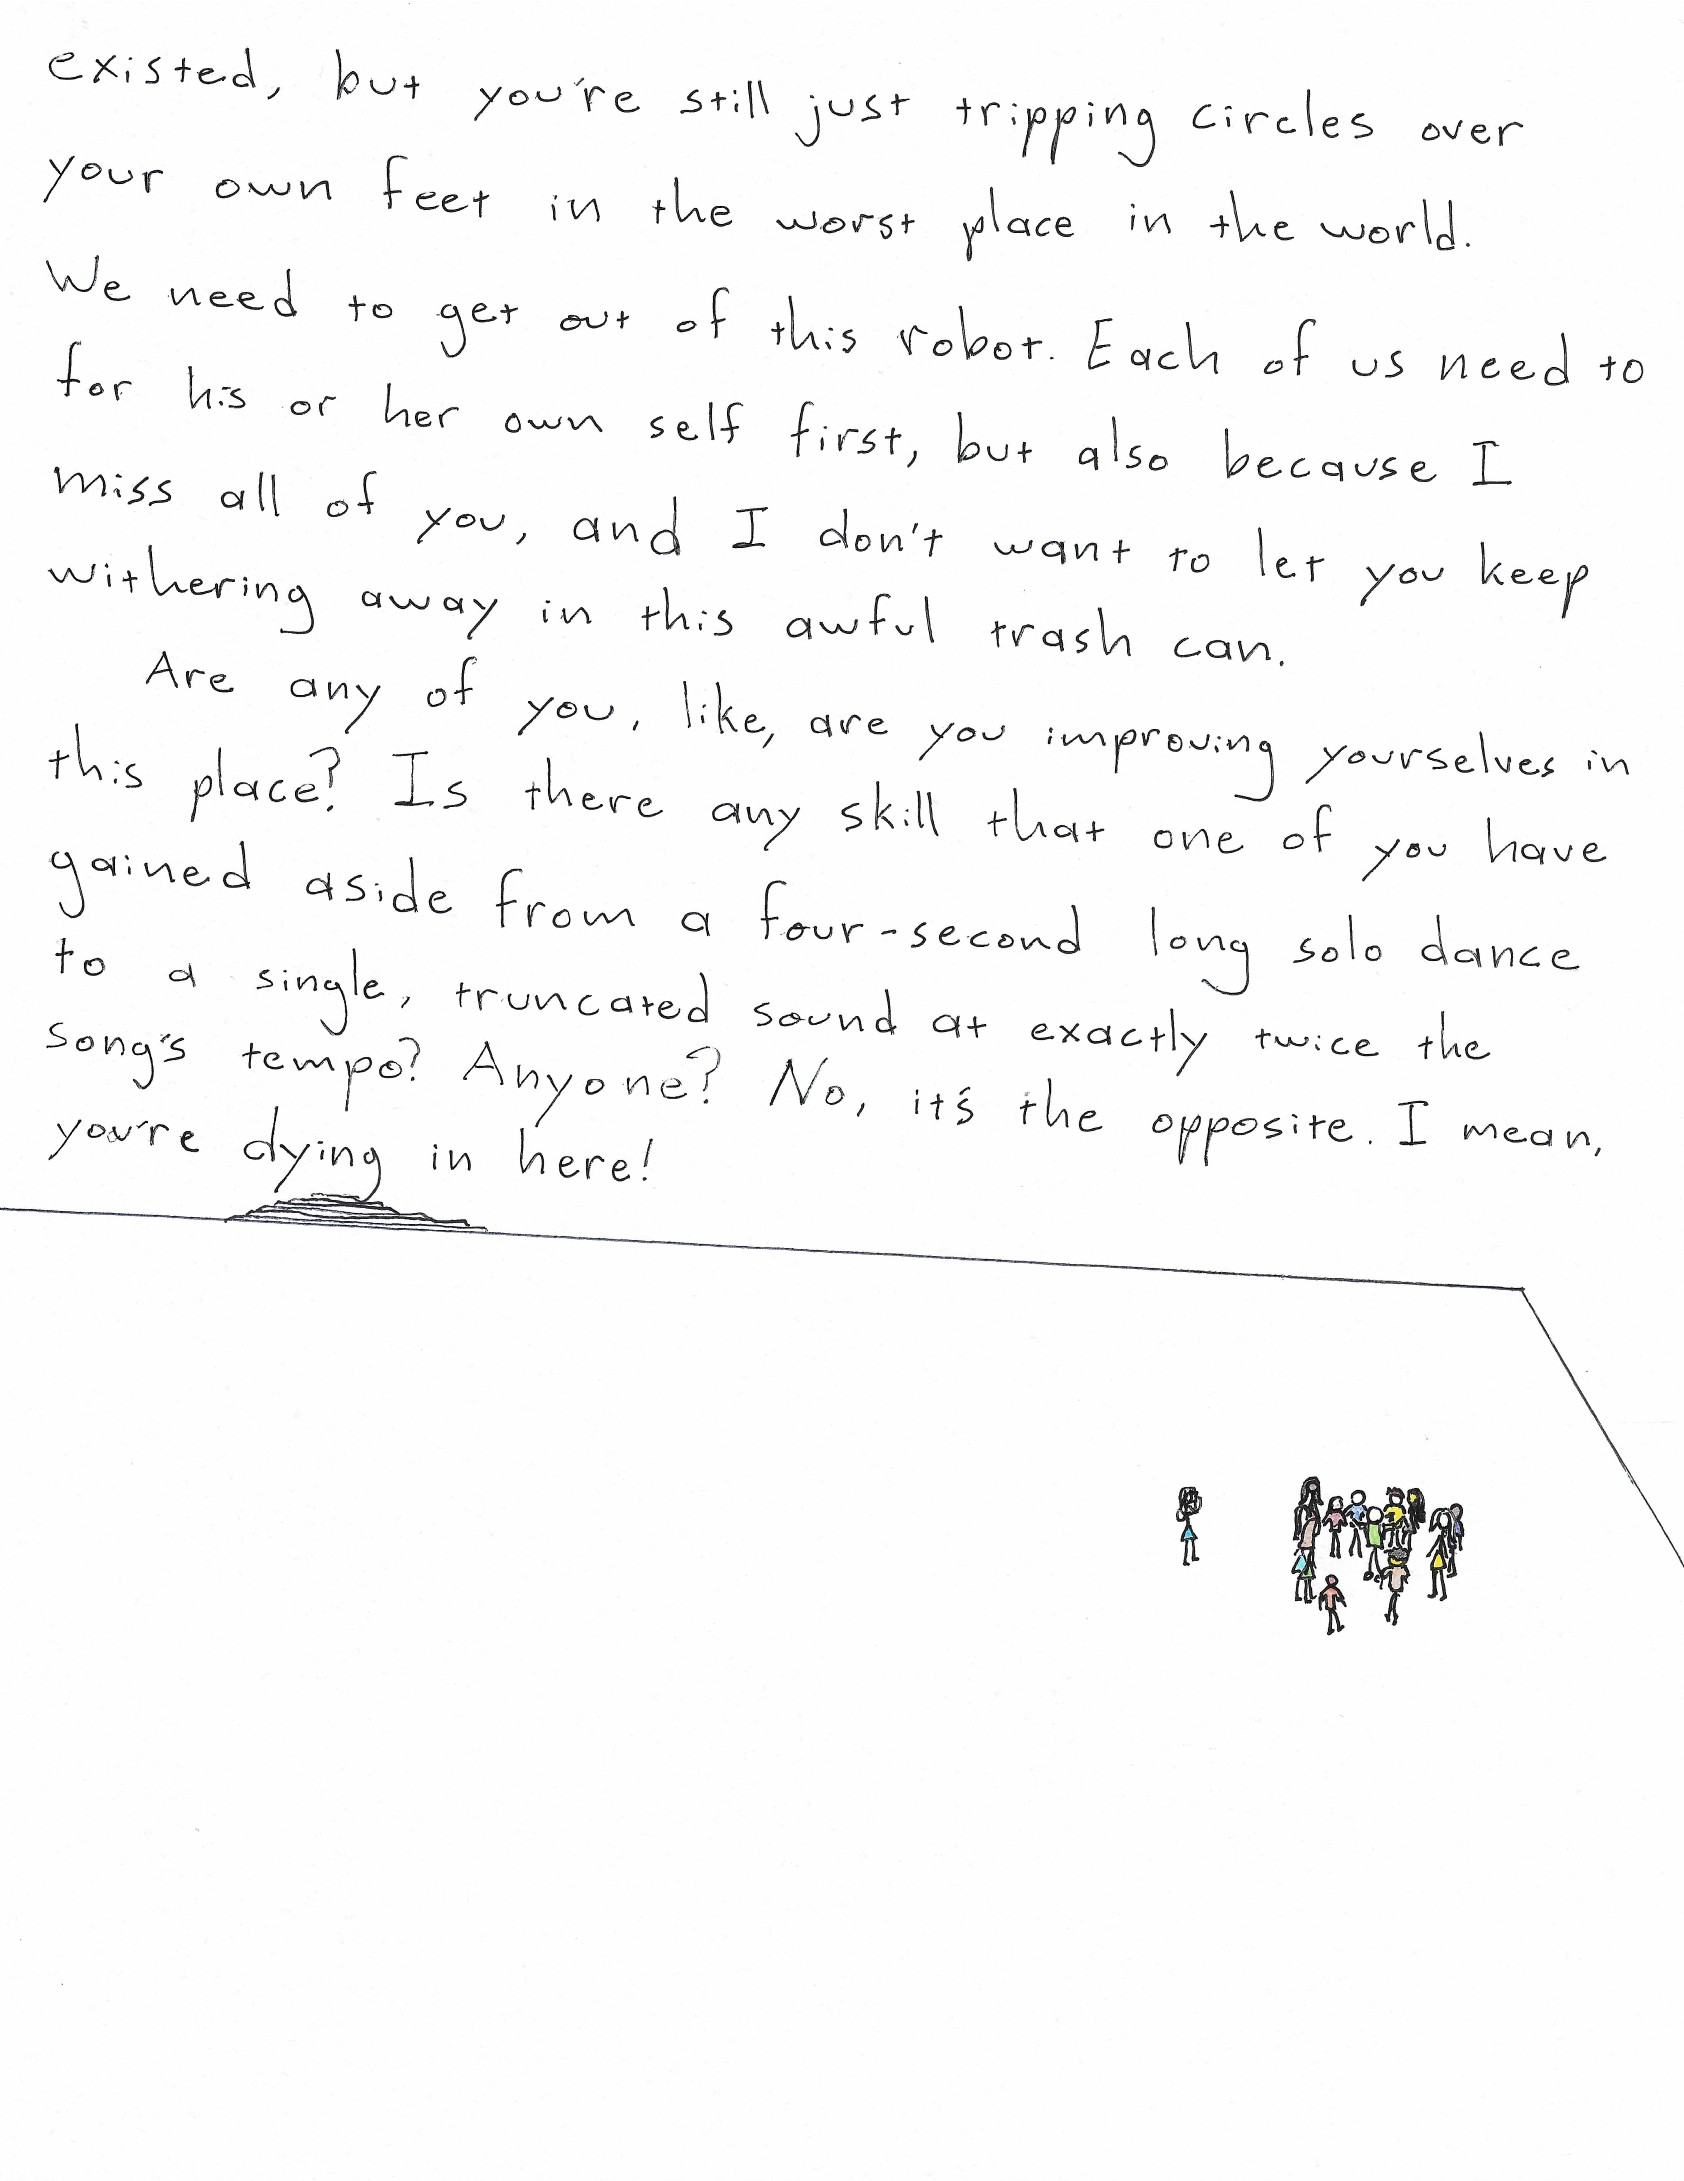 existed, but you're still just tripping circles over
your own feet in the worst place in the world.
We need to get out of this robot. Each of us need to
for his or her own self first, but also because I
miss all of you, and I don't want to let you keep
withering away in this awful trash can.
Are any of you, like, are you improving yourselves in
this place? Is there any skill that one of you have
gained aside from a four-second long solo dance
to a single, truncated sound at exactly twice the
song's tempo? Anyone? No, it's the opposite. I mean,
you're dying in here!